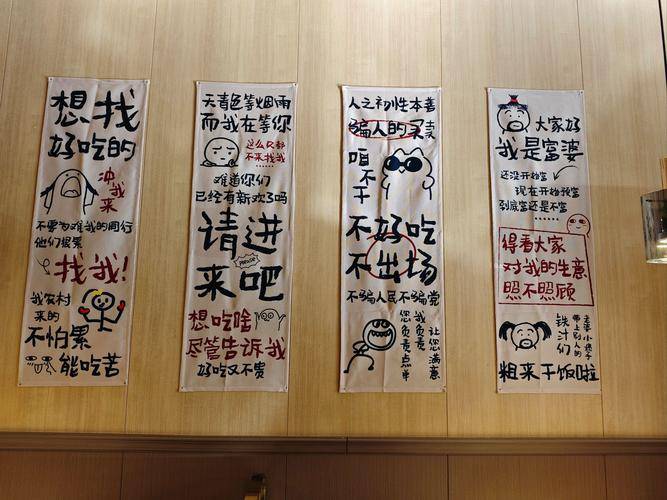 想找
好吃的
冲
我
来
不要为难我的同行
他们报累
找我!
我农村
来的
不怕累
能吃苦
天青色等烟雨
而我在等你
这么久都
不来找我
难道你们
已经有新欢了吗
请进
来吧
想吃啥
尽管告诉我
好吃又不贵
人之初性本善
骗人的买卖
咱
不
干
不好吃
不出场
不骗人民不骗党
让您满意
我负责
您负责点单
大家好
我是富婆
还没开始富
现在开始预富
到底富还是不富
得看大家
对我的生意
照不照顾
铁汁们
带上别人的
粗来干饭啦